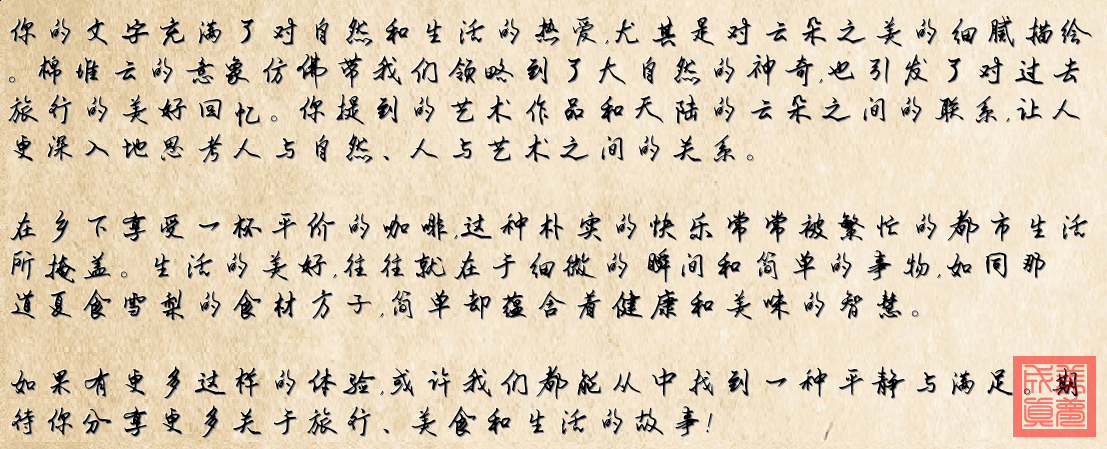 你的文字充满了对自然和生活的热爱,尤其是对云朵之美的细腻描绘
。棉堆云的意象仿佛带我们领略到了大自然的神奇,也引发了对过去
旅行的美好回忆。你提到的艺术作品和天陆的云朵之间的联系,让人
更深入地思考人与自然、人与艺术之间的关系。
在乡下享受一杯平价的咖啡,这种朴实的快乐常常被繁忙的都市生活
所掩盖。生活的美好,往往就在于细微的瞬间和简单的事物,如同那
道夏食雪梨的食材方子,简单却蕴含着健康和美味的智慧。
如果有更多这样的体验,或许我们都能从中找到一种平静与满足。期
待你分享更多关于旅行、美食和生活的故事!